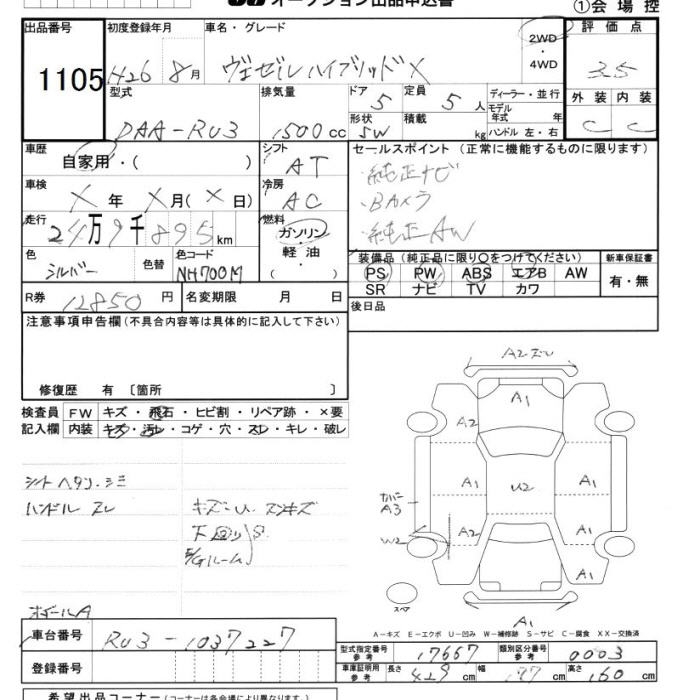 オークション出品申込書
①会場控
出品番号
1105
初度登録年月
H26 8月
車名・グレード
ヴェゼルハイブリッドX
2WD・4WD
評価点
3.5
型式
DAA-RU3
排気量
1500cc
ドア
5
形状
5W
定員
5人
積載
kg
ディーラー・並行
モデル年式 年
ハンドル 左・右
外装 内装
C C
車歴
自家用・( )
シフト
AT
セールスポイント (正常に機能するものに限ります)
・純正ナビ
・Bカメラ
・純正AW
車検
X年 X月(X日)
冷房
AC
走行
24万9千895km
燃料
ガソリン・軽油
( )
色
シルバー
色替
色コード
NH700M
装備品 (純正品に限り○をつけてください)
PS PW ABS エアB AW
SR ナビ TV カワ
新車保証書
有・無
R券
12850円
名変期限 月 日
後日品
注意事項申告欄 (不具合内容等は具体的に記入して下さい)
修復歴 有 〔箇所 〕
検査員記入欄
FW キズ・飛石・ヒビ割・リペア跡・×要
内装 キズ・汚レ・コゲ・穴・スレ・キレ・破レ
シート ヘタリ・シミ
ハンドル スレ
キズ・U スンキズ
下回り
E/Gルーム
S
ボデールA
A2ズレ
A1
A2
A1
U2
A1
カバーA3
A2
A1
W2
A1
スペア
A1
A-キズ E-エクボ U-凹み W-補修跡 S-サビ C-腐食 XX-交換済
車台番号
RU3-1037227
登録番号
型式指定番号 参考
17667
類別区分番号 参考
0003
車庫証明用 参考
長さ 429cm 幅 177cm 高さ 160cm
希望出品コーナー (コーナーは各会場により異なります)